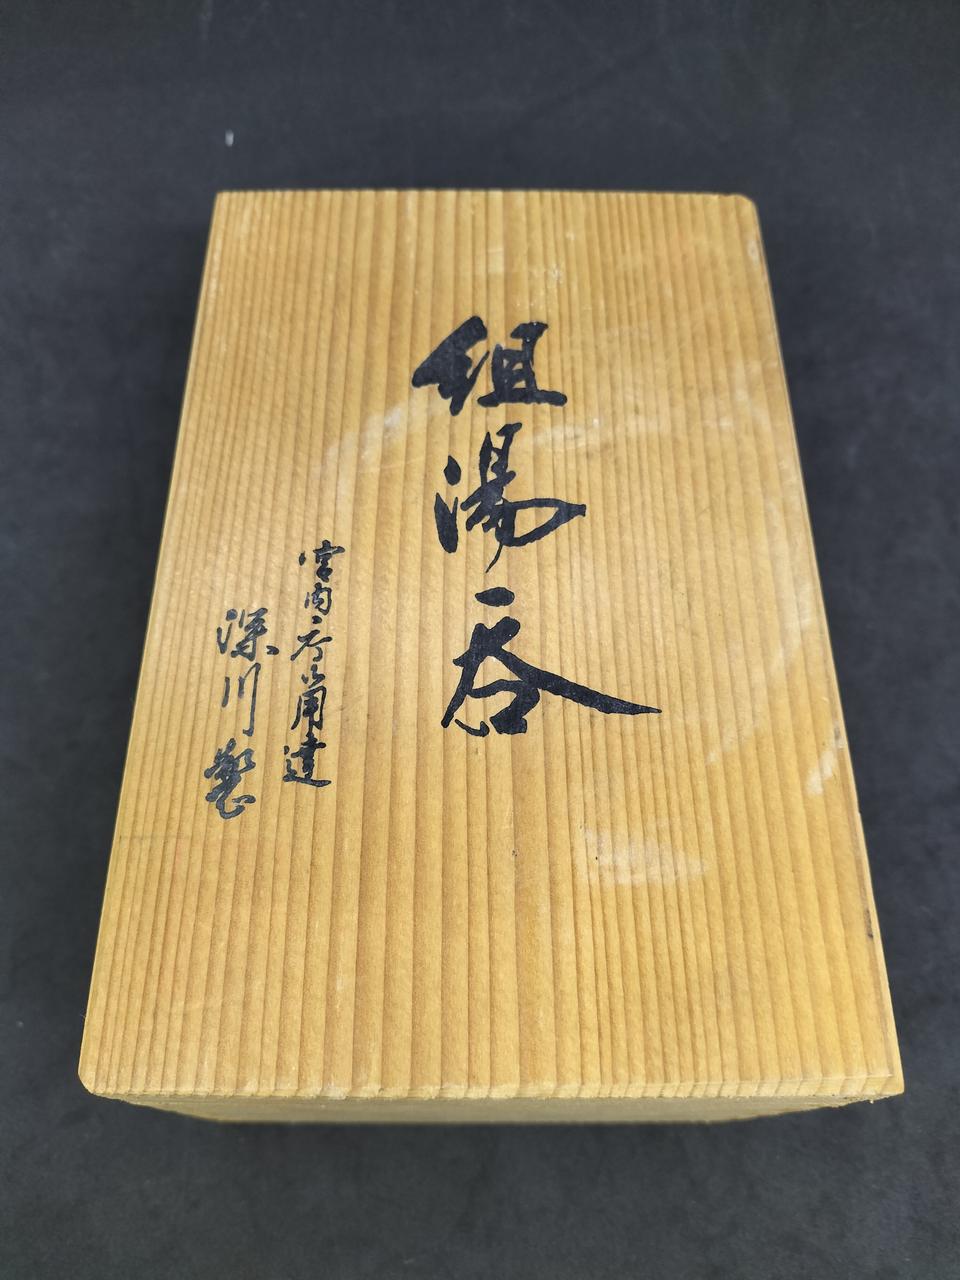 組湯呑
宮内庁御用達
深川製